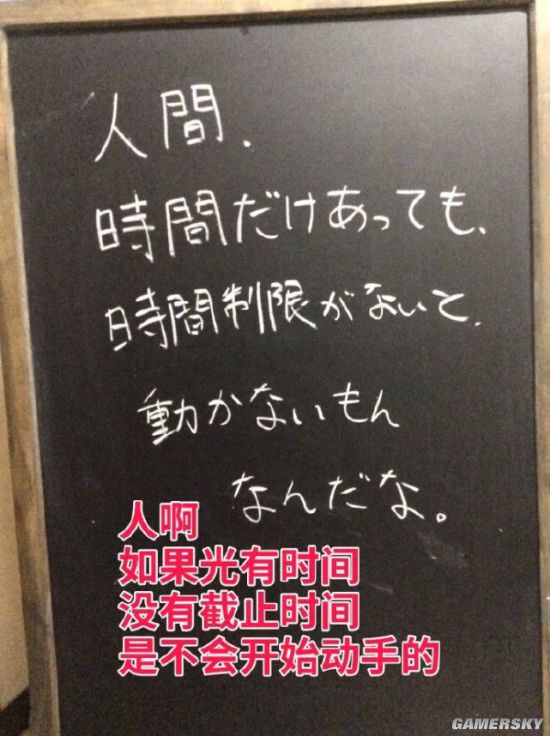 人間、
時間だけあっても、
時間制限がないと、
動かないもん
なんだな。
人啊
如果光有时间
没有截止时间
是不会开始动手的
GAMERSKY